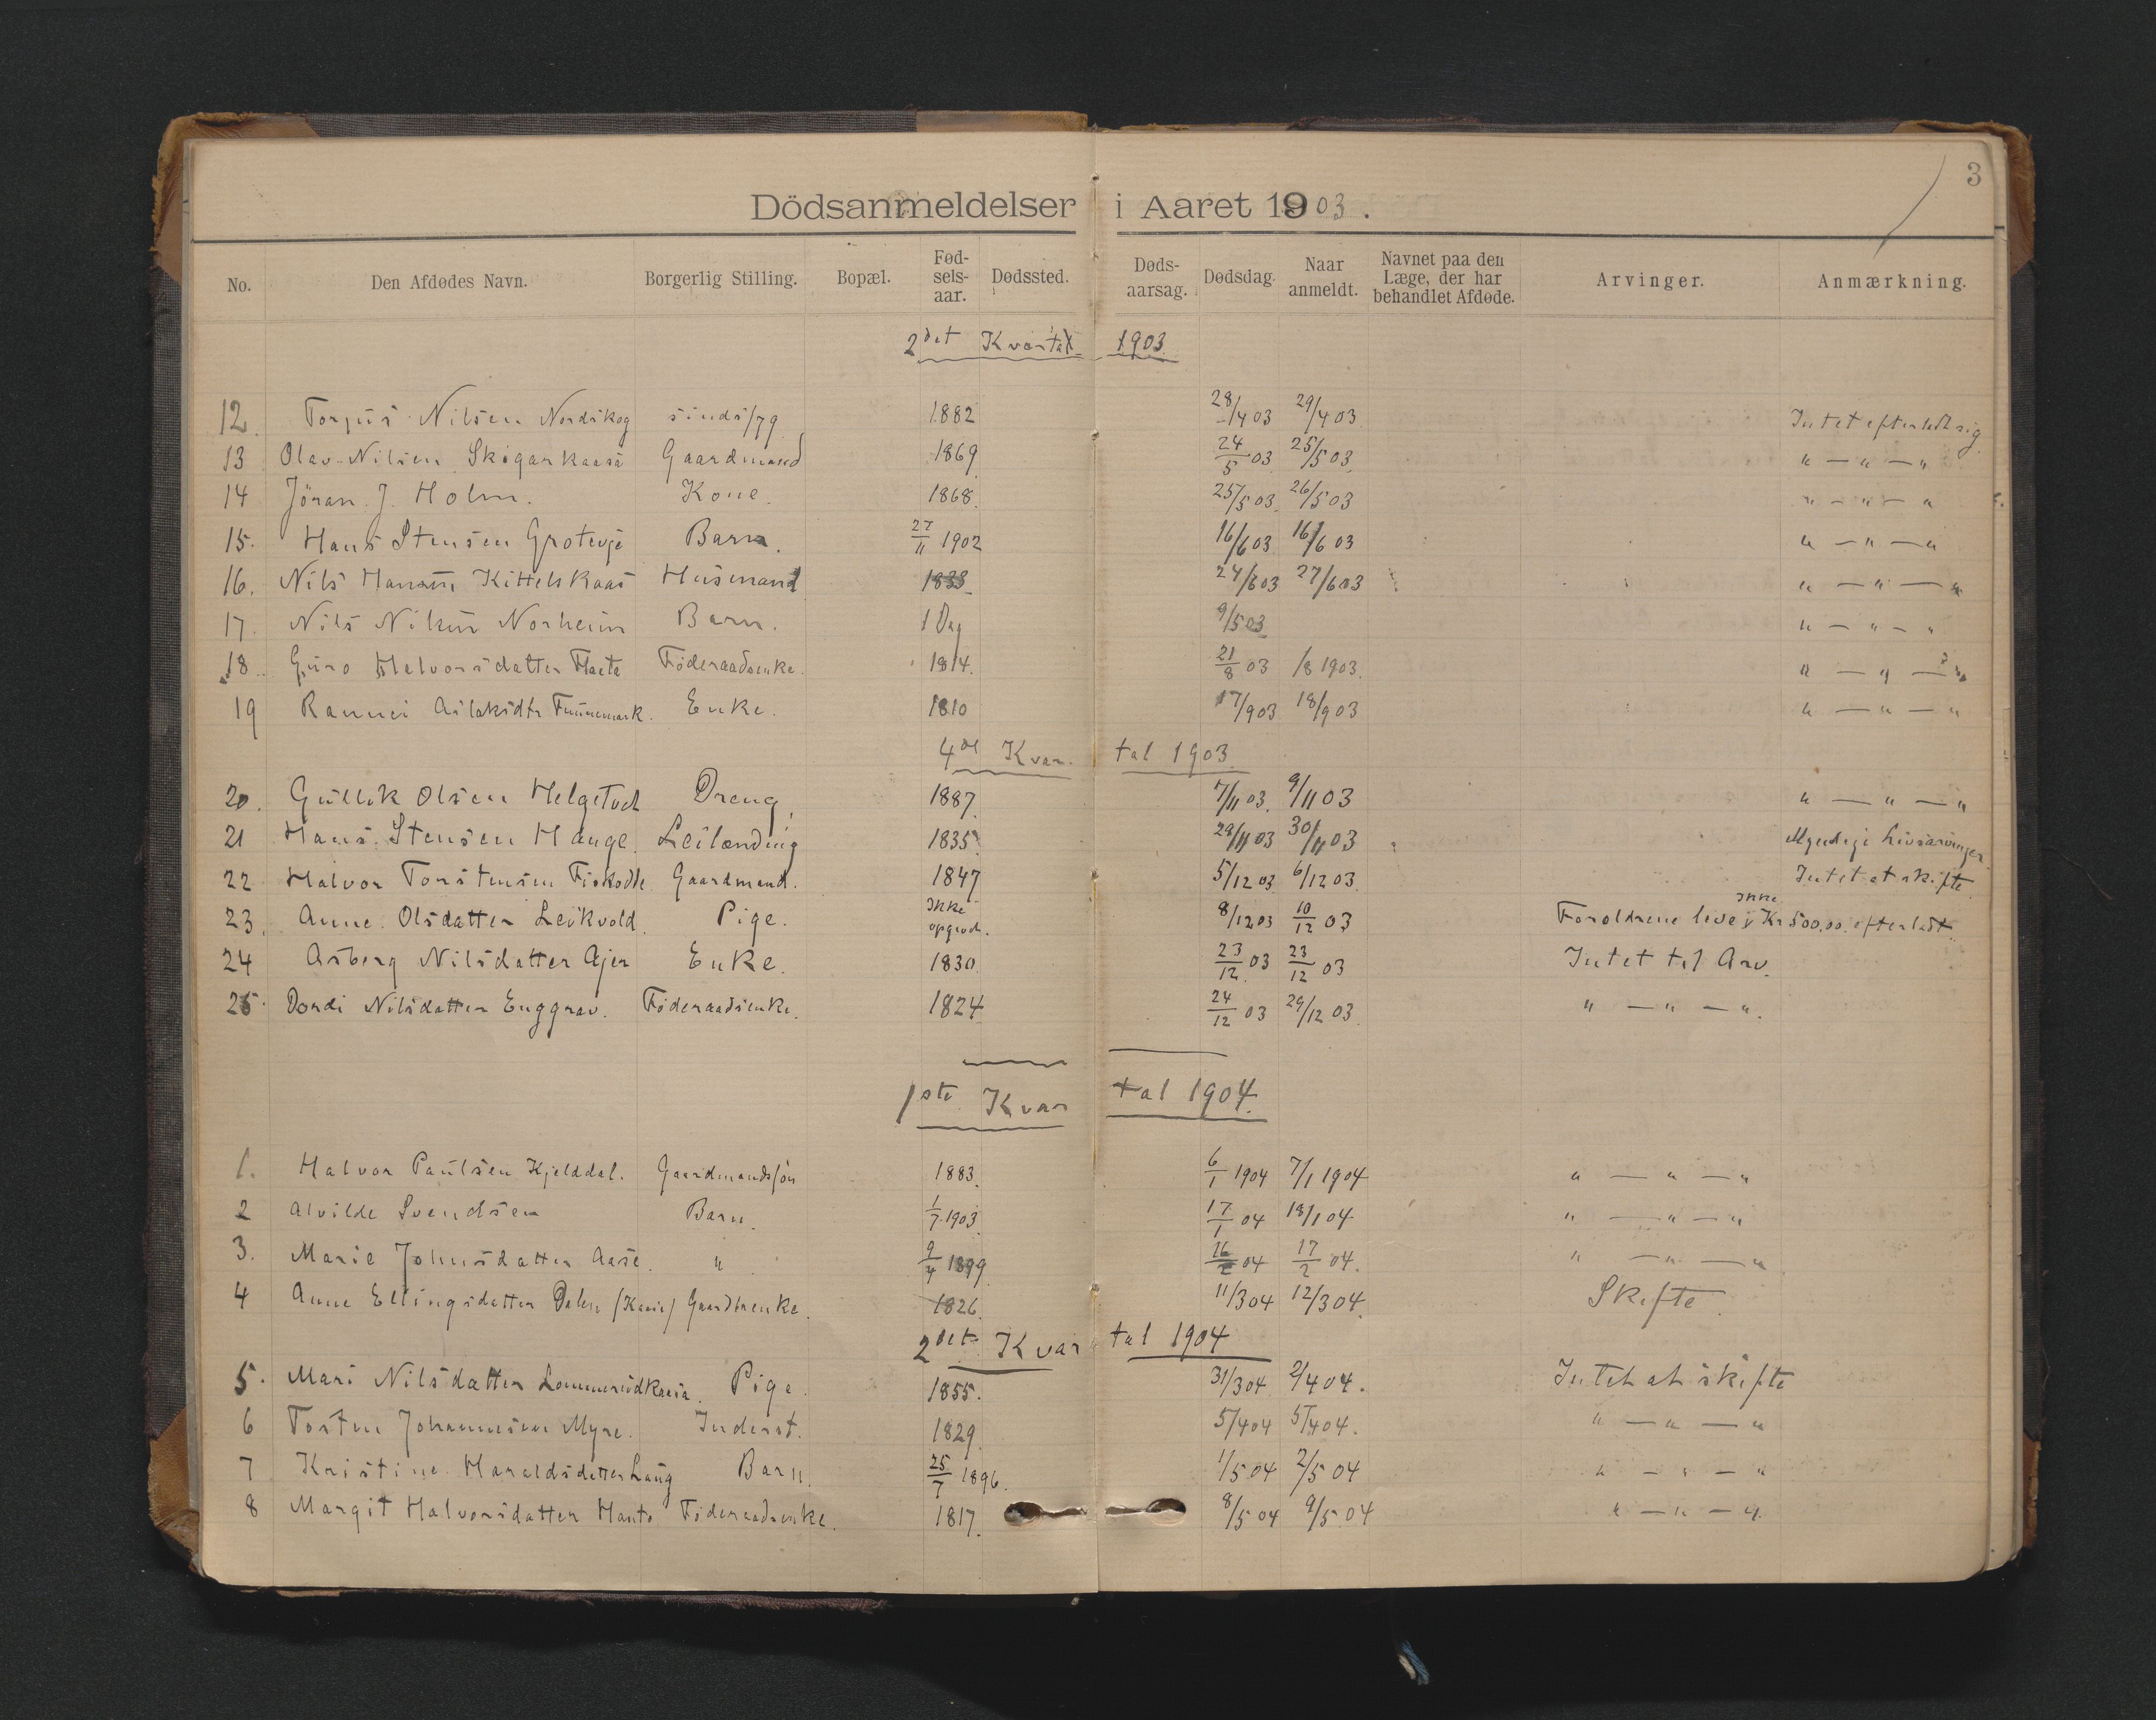 3
Dödsanmeldelser i Aaret 1903.
No. Den Afdødes Navn. Borgerlig Stilling. Bopæl. Fødselsaar. Dødssted. Dødsaarsag. Dødsdag. Naar anmeldt. Navnet paa den Læge, der har behandlet Afdøde. Arvinger. Anmærkning.
2det Kvartal 1903
12. Torjus Nilsen Nordskog sindssyg 1882 28/4 03 29/4 03 Intet efterladt sig
13 Olav Nilsen Skogarkaasa Gaardmand 1869 24/5 03 25/5 03 " — " — "
14 Jöran J. Holm. Kone. 1868. 25/5 03. 26/5 03 " — " — "
15. Hans Stensen Grotevje Barn. 27/11 1902 16/6 03 16/6 03 " — " — "
16. Nils Hansen Kittelskaas Husmand 1833 24/6 03 27/6 03 " — " — "
17. Nils Nilsen Norheim Barn. 1 Dag 9/5 03 " — " — "
18. Guro Halvorsdatter Haeta Föderaadsenke. 1814. 21/8 03 /8 1903. " — " — "
19 Rannei Aslaksdtr Funnemark. Enke. 1810 17/9 03 18/9 03 " — " — "
4de Kvartal 1903
20. Gullik Olsen Helgetvedt Dreng 1887. 7/11 03. 9/11 03 " — " — "
21 Hans Stensen Hauge Leilænding 1835 29/11 03 30/11 03 Myndige Livsarvinger.
22 Halvor Torstensen Fiskodde Gaardmand. 1847 5/12 03 6/12 03 Intet at skifte
23. Anne Olsdatter Leikvold. Pige. Ikke opgivet. 8/12 03 10/12 03 Foroldrene lever ikke Kr 500.00. efterladt
24 Asberg Nilsdatter Ajer Enke. 1830. 23/12 03 23/12 03 Intet til Arv.
25. Dordi Nilsdatter Enggrav. Föderaadsenke. 1824 24/12 03 29/12 03 " — " — ".
1ste Kvartal 1904.
1. Halvor Paulsen Kjelddal. Gaardmandssön 1883. 6/1 1904 7/1 1904 " — " — "
2 Alvilde Svendsen Barn. 1/7 1903 17/1 04 18/1 04 " — " — "
3. Marie Johnsdatter Aase. " 9/4 1899 16/2 04 17/2 04. " — " — "
4 Anne Ellingsdatter Dalen (Kaasa) Gaardbrenke. 1826. 11/3 04 12/3 04. Skifte.
2det Kvartal 1904
5. Mari Nilsdatter Lommerudkaasa. Pige. 1855. 31/3 04 2/4 04. Intet at skifte
6 Torsten Johannesen Myre. Inderst. 1829. 5/4 04 5/4 04. " — " — "
7 Kristine Haraldsdatter Haug Barn. 25/7 1896. 1/5 04 2/5 04 " — " — "
8 Margit Halvorsdatter Hanto Föderaadsenke. 1817. 8/5 04 9/5 04 " — " — "